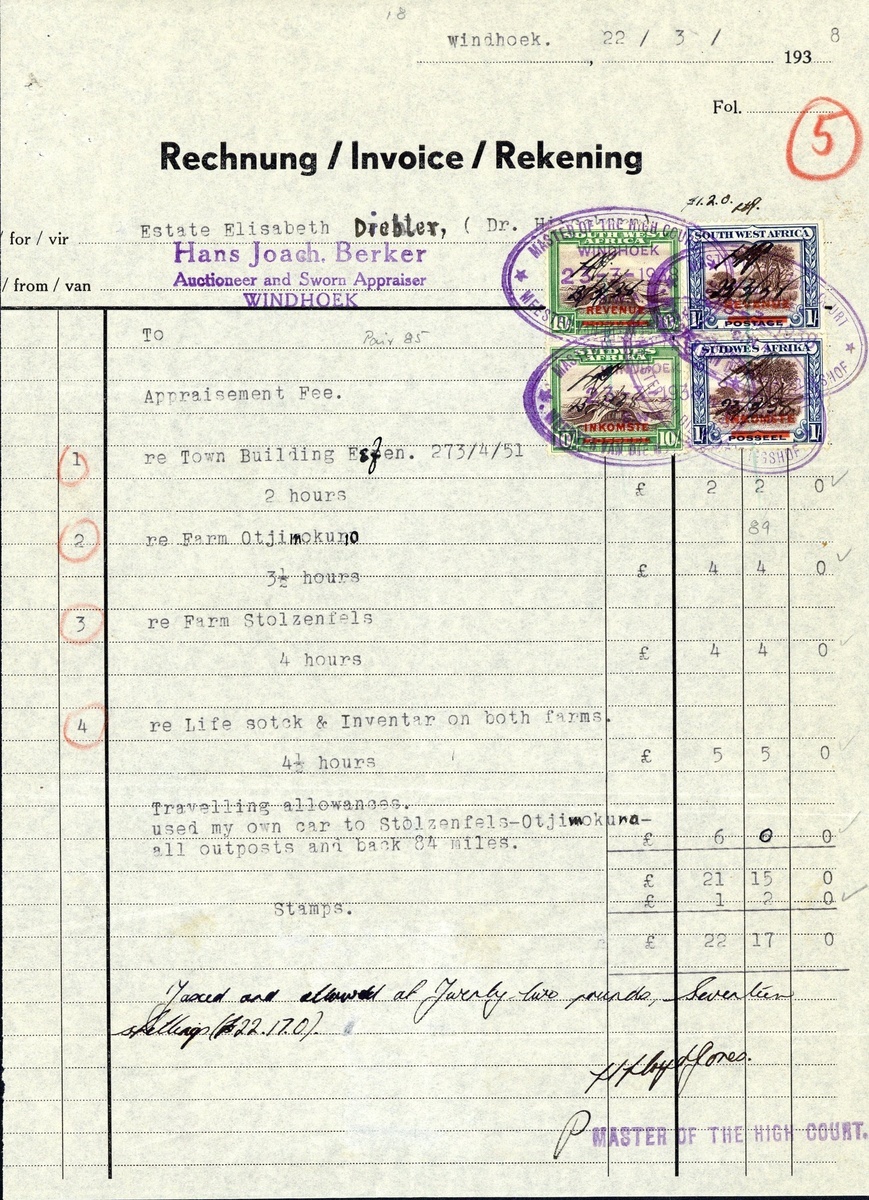 18
Windhoek. 22 / 3 / 193 8
Fol.
5
Rechnung / Invoice / Rekening
£1.2.0.
/ for / vir Estate Elisabeth Diehler, ( Dr. Hi
Hans Joach. Berker
/ from / van Auctioneer and Sworn Appraiser
WINDHOEK
MASTER OF THE HIGH COURT
WINDHOEK
SOUTH WEST AFRICA
REVENUE
10/
SOUTH WEST AFRICA
REVENUE
1/- POSTAGE 1/-
SUIDWES AFRIKA
INKOMSTE
10/
SUIDWES AFRIKA
INKOMSTE
1/- POSSEËL 1/-
To
Appraisement Fee.
1 re Town Building Essen. 273/4/51
2 hours £ 2 2 0
89
2 re Farm Otjimokuno
3½ hours £ 4 4 0
3 re Farm Stolzenfels
4 hours £ 4 4 0
4 re Life sotck & Inventar on both farms.
4½ hours £ 5 5 0
Travelling allowances.
used my own car to Stolzenfels-Otjimokuno-
all outposts and back 84 miles. £ 6 0 0
£ 21 15 0
Stamps. £ 1 2 0
£ 22 17 0
Taxed and allowed at Twenty-two pounds, Seventeen
shillings (£22.17.0).
H Lloyd Jones.
P MASTER OF THE HIGH COURT.